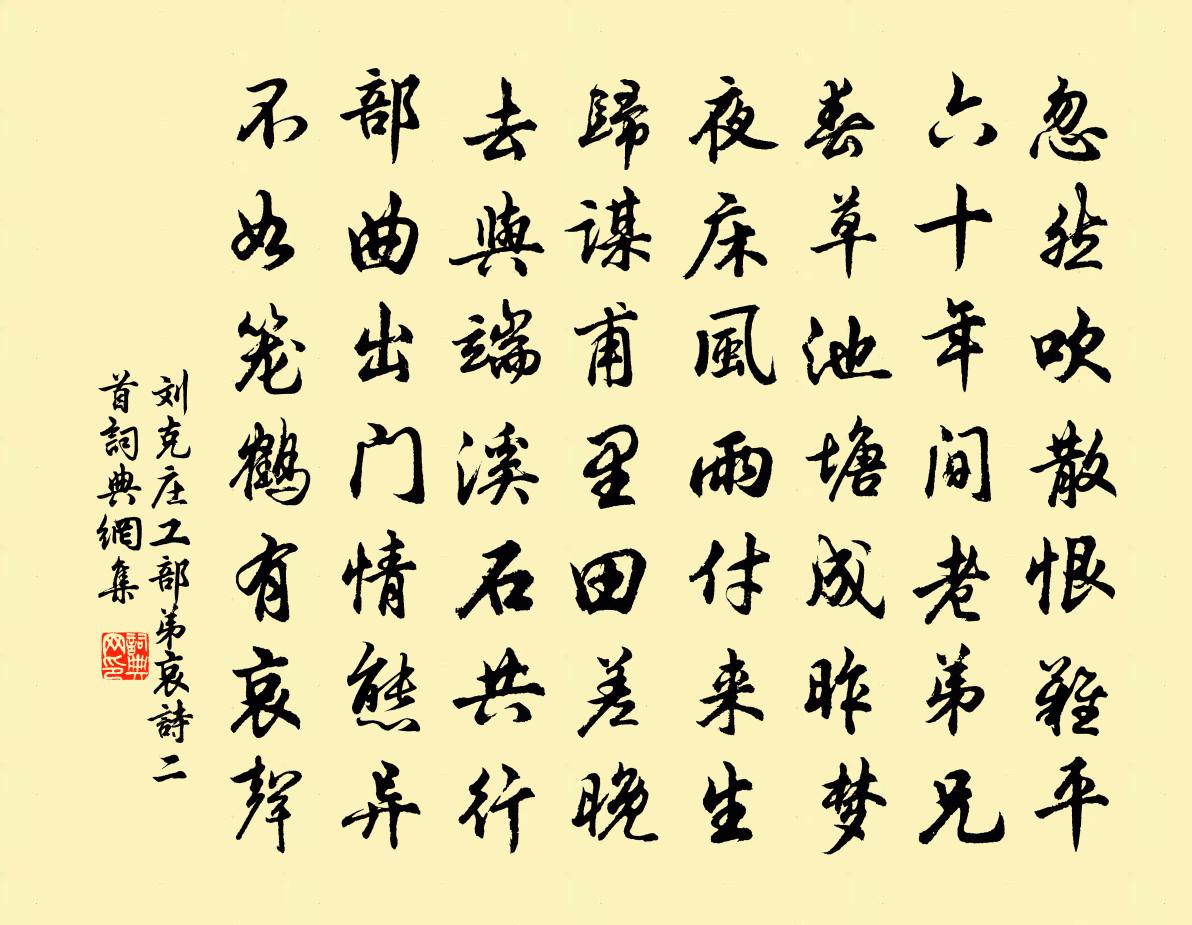 忽然吹散恨難平
六十年间老弟兄
春草池塘成昨梦
夜床風雨付来生
歸謀甫里田差晚
去與端溪石共行
部曲出门情態异
不如笼鶴有哀聲
刘克庄工部弟哀詩二
首詞典網集
詞典
网印